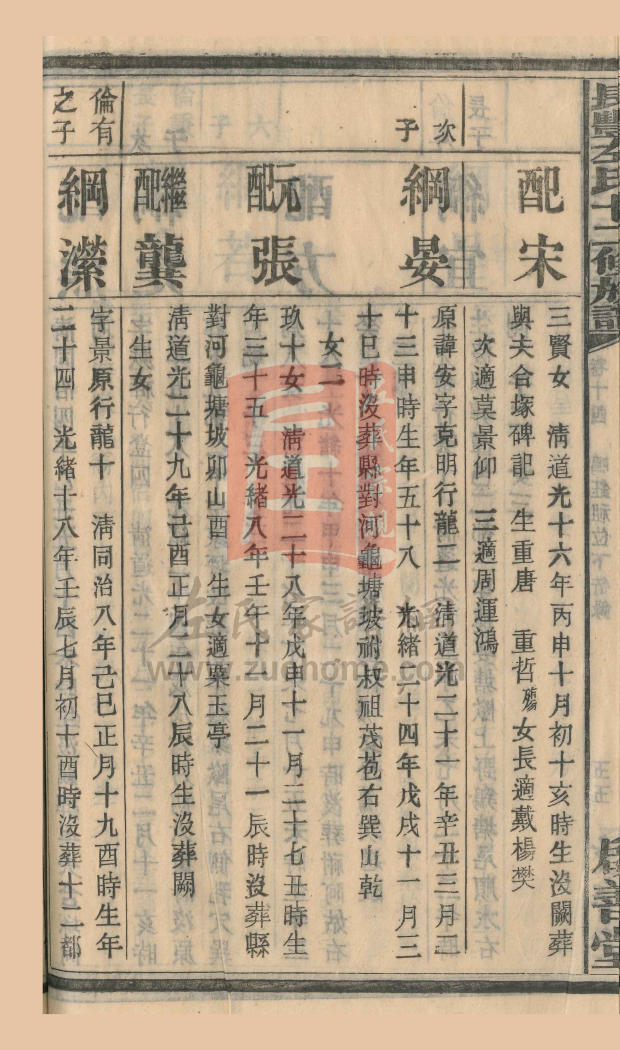 長豐左氏十二修族譜
卷十四
配宋
三賢女 淸道光十六年丙申十月初十亥時生沒闕葬
與夫合塚碑記 生重唐 重哲殤女長適戴楊樊
次適莫景仰 三適周運鴻
次子
綱晏
原諱安字克明行龍一 淸道光二十一年辛丑三月二
十三申時生年五十八 光緒二十四年戊戌十一月三
十巳時沒葬縣對河龜塘坡祔叔祖茂苞右巽山乾
女二
元配張
玖十女 淸道光二十八年戊申十一月二十七丑時生
年三十五 光緒八年壬午十一月二十一辰時沒葬縣
對河龜塘坡卯山酉 生女適粟玉亭
繼配龔
淸道光二十九年己酉正月二十八辰時生沒葬闕
生女
倫有之子
綱濚
字景原行龍十 淸同治八年己巳正月十九酉時生年
二十四 光緒十八年壬辰七月初十酉時沒葬十二都
左氏家譜網
www.zuohome.com